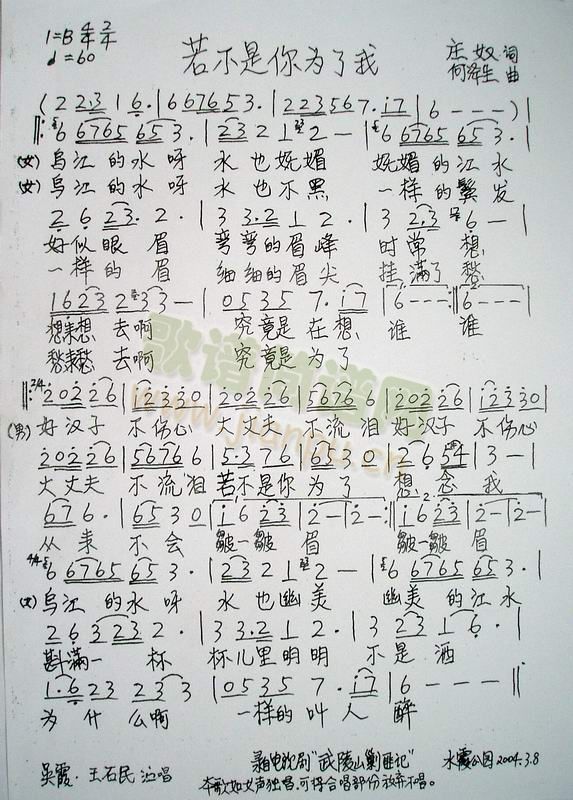 1=B 4/4 2/4
♩=60
若不是你为了我
庄奴 词
何泽生 曲
(2 2·3 1 6· | 6 6765 3· | 2 2 3 5 6 7· i7 | 6 - - - ) |
6 6765 65 3· | 23 2 1 2 — | 6 6765 65 3· |
(女) 乌江的水呀 水也妩媚 妩媚的江水
(女) 乌江的水呀 水也不黑 一样的鬓发
2 6 23 2· | 3 3·2 1 2· | 3 2·3 6 — |
好似眼眉 弯弯的眉峰 时常想
一样的眉 细细的眉尖 挂满了愁
1623 2 33 — | 0535 7· i7 | 6 - - - :| 6 - - - |
想来想去啊 究竟是在想谁 谁
愁来愁去啊 究竟是为了
2/4 2022 26 | i2330 | 2022 26 | 56766 | 2022 26 | i2330 |
(男) 好汉子 不伤心 大丈夫 不流泪 好汉子 不伤心
2022 26 | 56766 | 5·3 76 | 6530 | 2 6 54 | 3 - |
大丈夫 不流泪 若不是你为了想念我
67 6· | 65 3 0 | i6 23 | 2 - | 2 - :| i6 23 | 2 - | 2 - |
从来不会 皱一皱眉 皱一皱眉
4/4 6 6765 65 3· | 23 2 1 2 — | 6 6765 65 3· |
(女) 乌江的水呀 水也幽美 幽美的江水
2 6 3 23 2· | 3 3·2 1 2· | 3 23 1 6· |
斟满一杯 杯儿里明明不是酒
1·6 23 2 33 | 0535 7· i7 | 6 - - - ‖
为什么啊 一样的叫人醉
吴霞·王石民 演唱
录自电视剧"武陵山剿匪记"
水霞公园2004.3.8
本歌如女声独唱.可将合唱部份放弃不唱。
歌谱简谱网
www.jianpu.cn